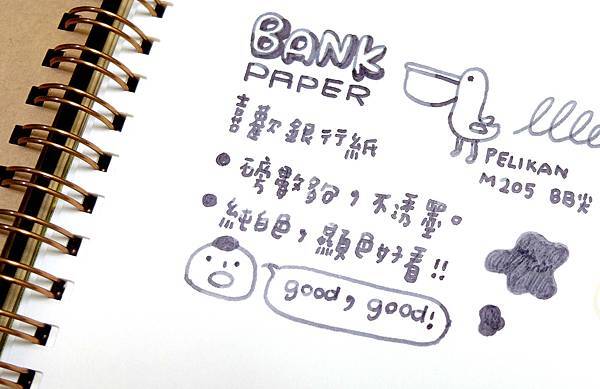 BANK
PAPER
喜歡銀行紙
PELIKAN
M205 BB尖
• 磅數夠，不透墨。
• 純白色，顯色好看!!
good, good!